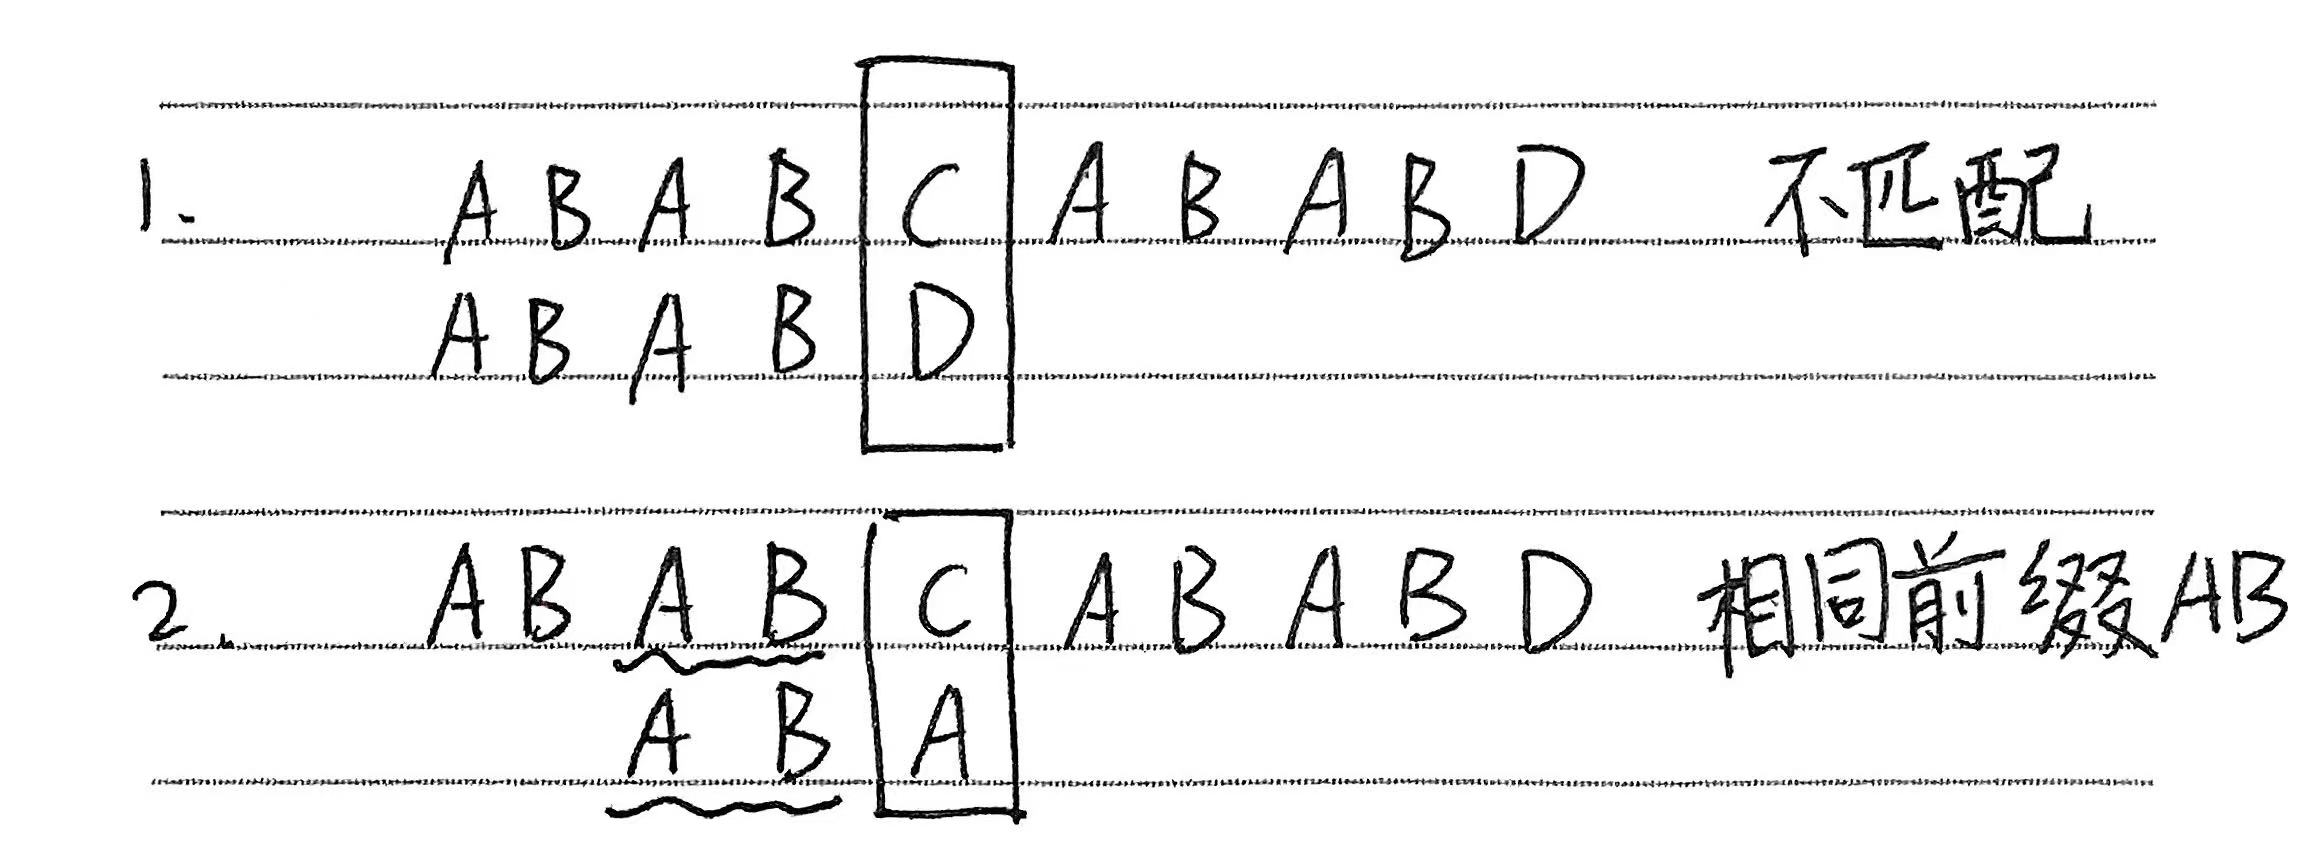 1. A B A B C A B A B D 不匹配
A B A B D
2. A B A B C A B A B D 相同前缀AB
A B A